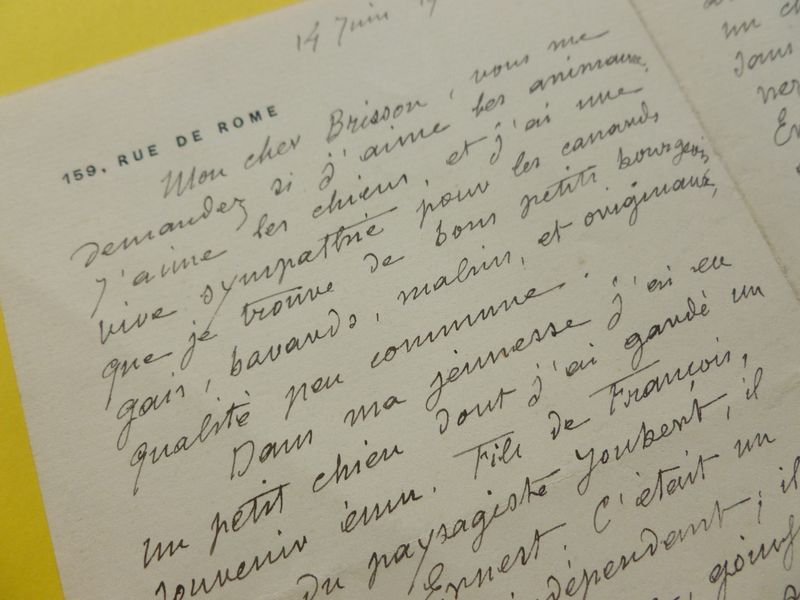 14 Juin
159, RUE DE ROME
Mon cher Brisson, vous me
demandez si j'aime les animaux.
J'aime les chiens, et j'ai une
vive sympathie pour les canards
que je trouve de bons petits bourgeois
gais, bavards, malins, et originaux,
qualité peu commune.
Dans ma jeunesse j'ai eu
un petit chien dont j'ai gardé un
souvenir ému. Fils de François,
du paysagiste Joubert, il
Ernest. C'était un
indépendant, il
un ch
dans